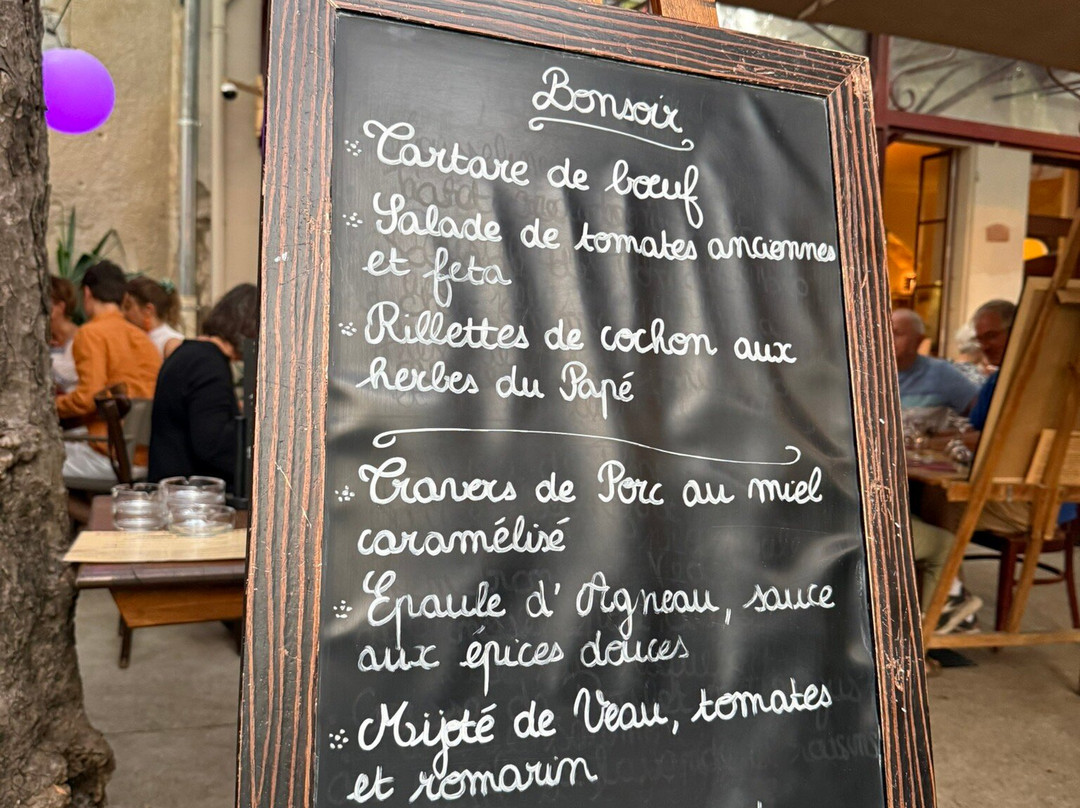 Bonsoir
Tartare de bœuf
Salade de tomates anciennes
et feta
Rillettes de cochon aux
herbes du Papé
Travers de Porc au miel
caramélisé
Epaule d'Agneau, sauce
aux épices douces
Mijoté de Veau, tomates
et romarin